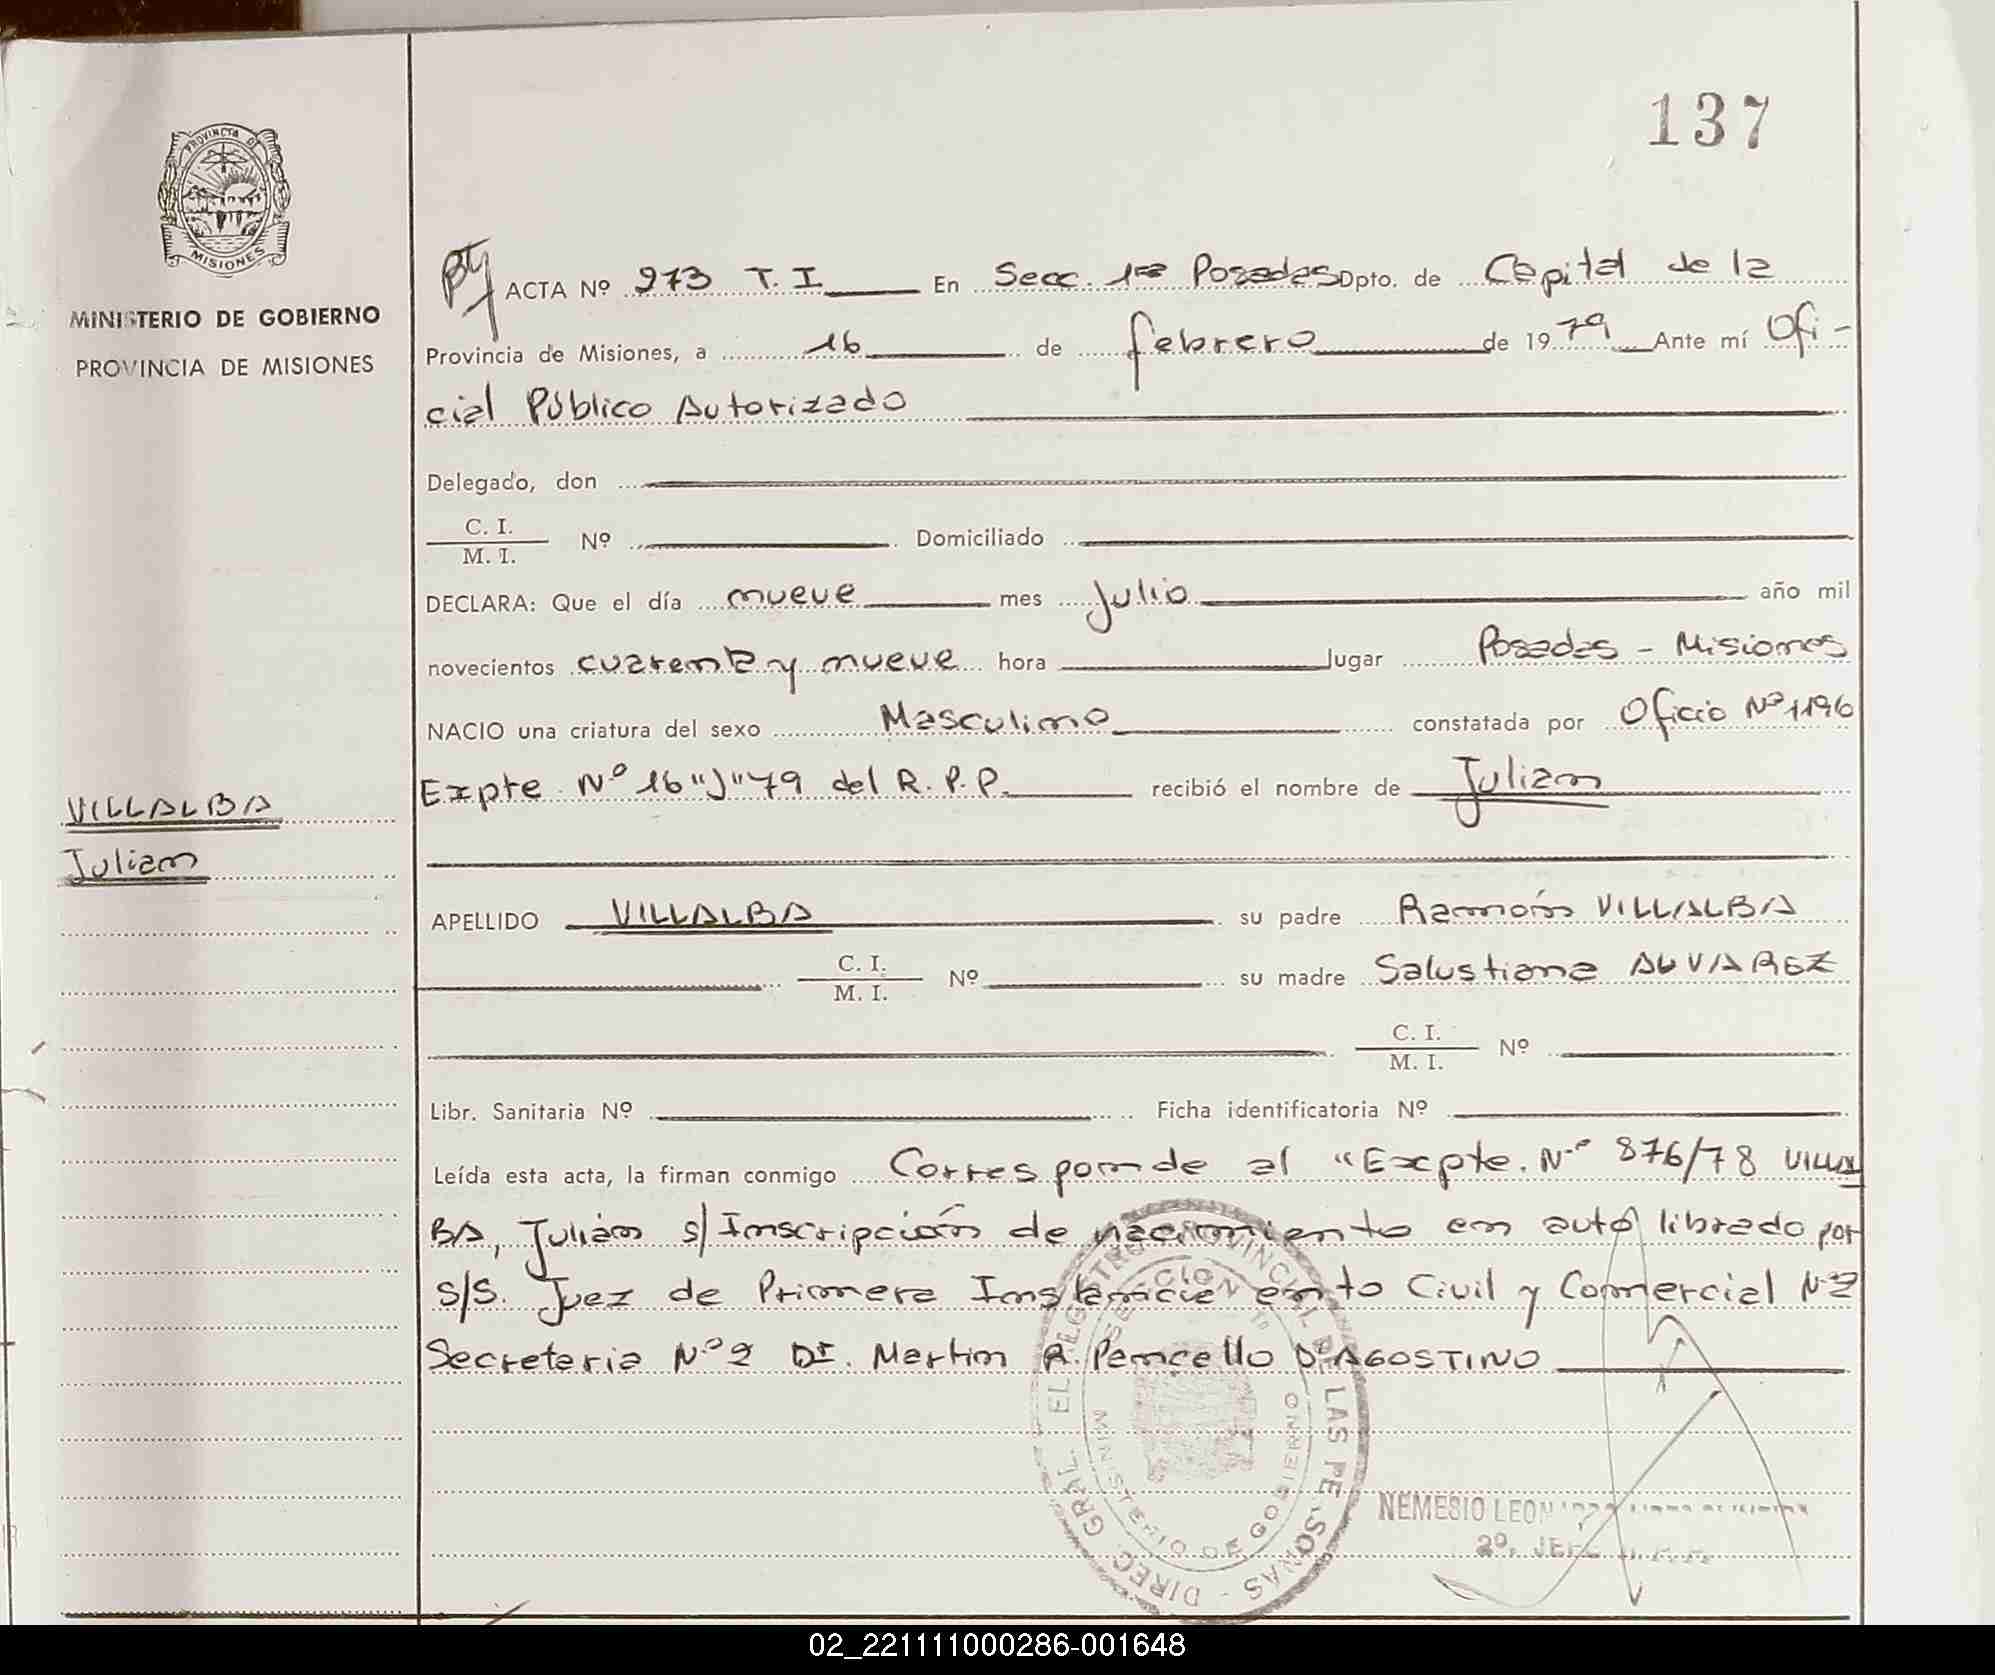 137
PROVINCIA DE
MISIONES
MINISTERIO DE GOBIERNO
PROVINCIA DE MISIONES
ACTA Nº 973 T. I. En Secc. 1ra Posadas Dpto. de Capital de la
Provincia de Misiones, a 16 de febrero de 1979 Ante mí Ofi-
cial Público Autorizado
Delegado, don
C. I.
M. I. Nº Domiciliado
DECLARA: Que el día nueve mes Julio año mil
novecientos cuarenta y nueve hora lugar Posadas - Misiones
NACIO una criatura del sexo Masculino constatada por Oficio Nº 1196
Expte Nº 16 "J" 79 del R. P. P. recibió el nombre de Julian
VILLALBA
Julian
APELLIDO VILLALBA su padre Ramón VILLALBA
C. I.
M. I. Nº su madre Salustiana ALVAREZ
C. I.
M. I. Nº
Libr. Sanitaria Nº Ficha identificatoria Nº
Leída esta acta, la firman conmigo Corresponde al "Expte. Nº 876/78 VILLAL
BA, Julián s/ Inscripción de nacimiento en auto librado por
S/S. Juez de Primera Instancia en to Civil y Comercial Nº 2
Secretaria Nº 2 Dr. Martin A. Poncello D'AGOSTINO
DIREC. GRAL. EL REGISTRO PROVINCIAL DE LAS PERSONAS
MINISTERIO DE GOBIERNO
NEMESIO
2º. JEFE
02_221111000286-001648